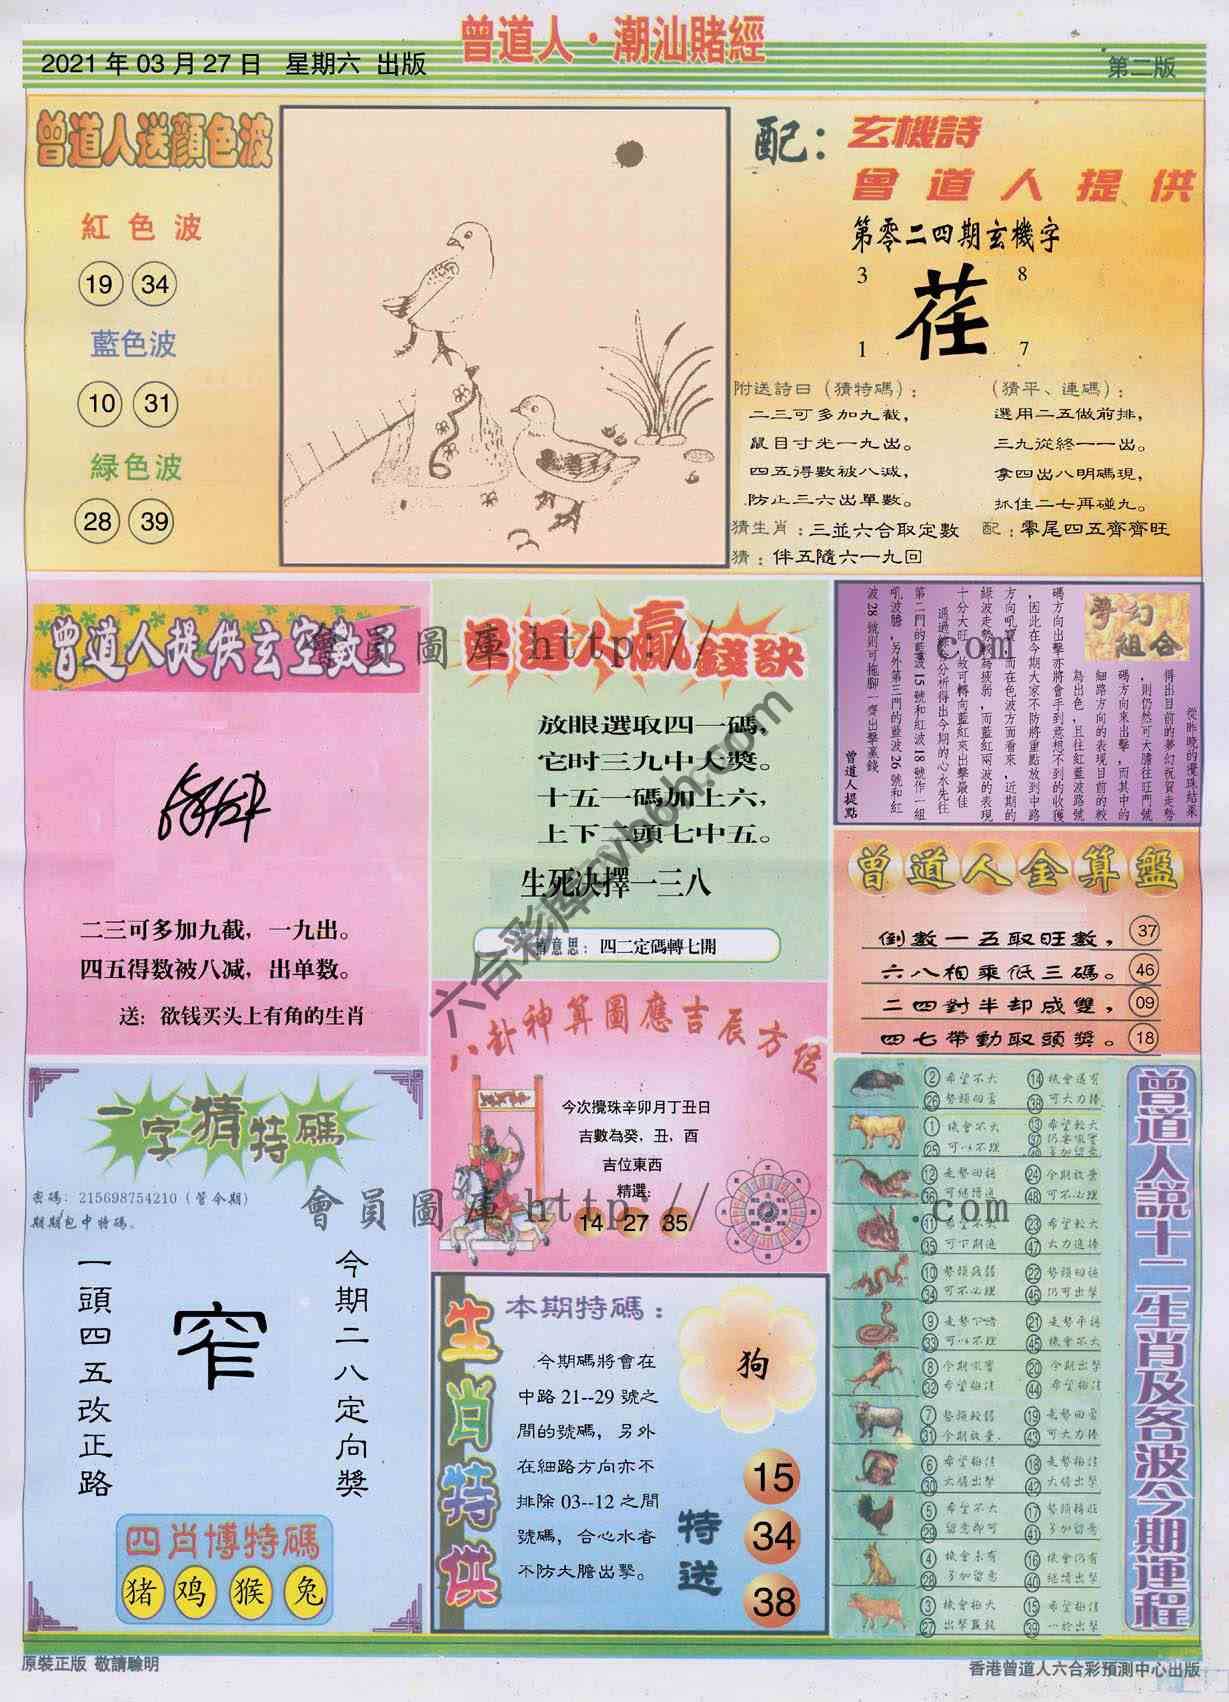 曾道人·潮汕賭經
2021 年 03 月 27 日 星期六 出版
第二版
曾道人送顏色波
紅色波
19 34
藍色波
10 31
緑色波
28 39
配：
玄機詩
曾道人提供
第零二四期玄機字
3 8
茬
1 7
附送詩曰（猜特碼）：
二三可多加九截，
鼠目寸光一九出。
四五得數被八減，
防止三六出單數。
（猜平、連碼）：
選用二五做前排，
三九從終一一出。
拿四出八明碼現，
抓住二七再碰九。
猜生肖：三並六合取定數
配：零尾四五齊齊旺
猜：伴五隨六一九回
曾道人提供玄空數
二三可多加九截，一九出。
四五得数被八减，出单数。
送：欲钱买头上有角的生肖
曾道人贏錢訣
放眼選取四一碼，
它时三九中大獎。
十五一碼加上六，
上下二頭七中五。
生死决擇一三八
四二定碼轉七開
夢幻組合
從昨晚的攪珠結果
得出目前的夢幻祝賀走勢
，則仍然可大膽往旺門號
碼方向來出擊，而其中的
細路方向的表現目前的較
為出色，且往紅藍波路號
碼方向出擊亦將會手到意想不到的收獲
，因此在今期大家不防將重點放到中路
方向吼寶，而在色波方面看來，近期的
綠波走勢較為疲弱，而藍紅兩波的表現
十分大旺，故可轉向藍紅來出擊最佳
第二門的藍波 15 號和紅波 18 號作一組
吼波膽，另外第三門的藍波 26 號和紅
波 28 號則可拖腳一齊出擊贏錢
曾道人提點
曾道人金算盤
倒數一五取旺數， 37
六八相乘低三碼。 46
二四對半却成雙， 09
四七帶動取頭獎。 18
八卦神算圖應吉辰方位
今次攪珠辛卯月丁丑日
吉數為癸，丑，酉
吉位東西
精選：
14 27 35
一字猜特碼
密碼：215698754210（管令期）
期期包中特碼。
今期二八定向獎
窄
一頭四五改正路
四肖博特碼
猪 鸡 猴 兔
生肖特供
本期特碼：
今期碼將會在
中路 21--29 號之
間的號碼，另外
在細路方向亦不
排除 03--12 之間
號碼，合心水者
不防大膽出擊。
狗
特送
15
34
38
曾道人説十二生肖及各波今期運程
② 希望不大 ⑭ 機會還有
㉖ 勢頭回省 ㊳ 可大力捧
① 機會不大 ⑬ 希望較大
㉕ 可以不理
⑫ 走勢回穩 ㉔ 今期放棄
㊱ 可繼續追 ㊽ 可不必理
㉓ 希望較大
㉟ 可下期追 ㊼ 大力追捧
⑩ 勢頭疲弱 ㉒ 勢頭回穩
㉞ 可不必理 ㊻ 仍可出擊
⑨ 走勢下滑 ㉑ 走勢平穩
㉝ 可以不理 ㊺ 機會不大
⑧ 今期吼寶 ⑳ 今期出擊
㉜ 希望極佳 ㊹ 希望極佳
⑦ 勢頭較弱 ⑲ 走勢回省
㉛ 今期放棄 ㊸ 可大力捧
⑥ 希望極佳 ⑱ 走勢極佳
㉚ 大膽出擊 ㊷ 大膽出擊
⑤ 希望不大 ⑰ 勢頭轉旺
㉙ 留意即可 ㊶ 多加留意
④ 機會未有 ⑯ 機會仍有
㉘ 多加留意 ㊵ 繼續出擊
③ 機會極大 ⑮ 希望極佳
㉗ 出擊贏錢 ㊴ 一於出擊
會員圖庫 http:// .com
會員圖庫 http:// .com
六合彩库cvb6h.com
原裝正版 敬請驗明
香港曾道人六合彩預測中心出版